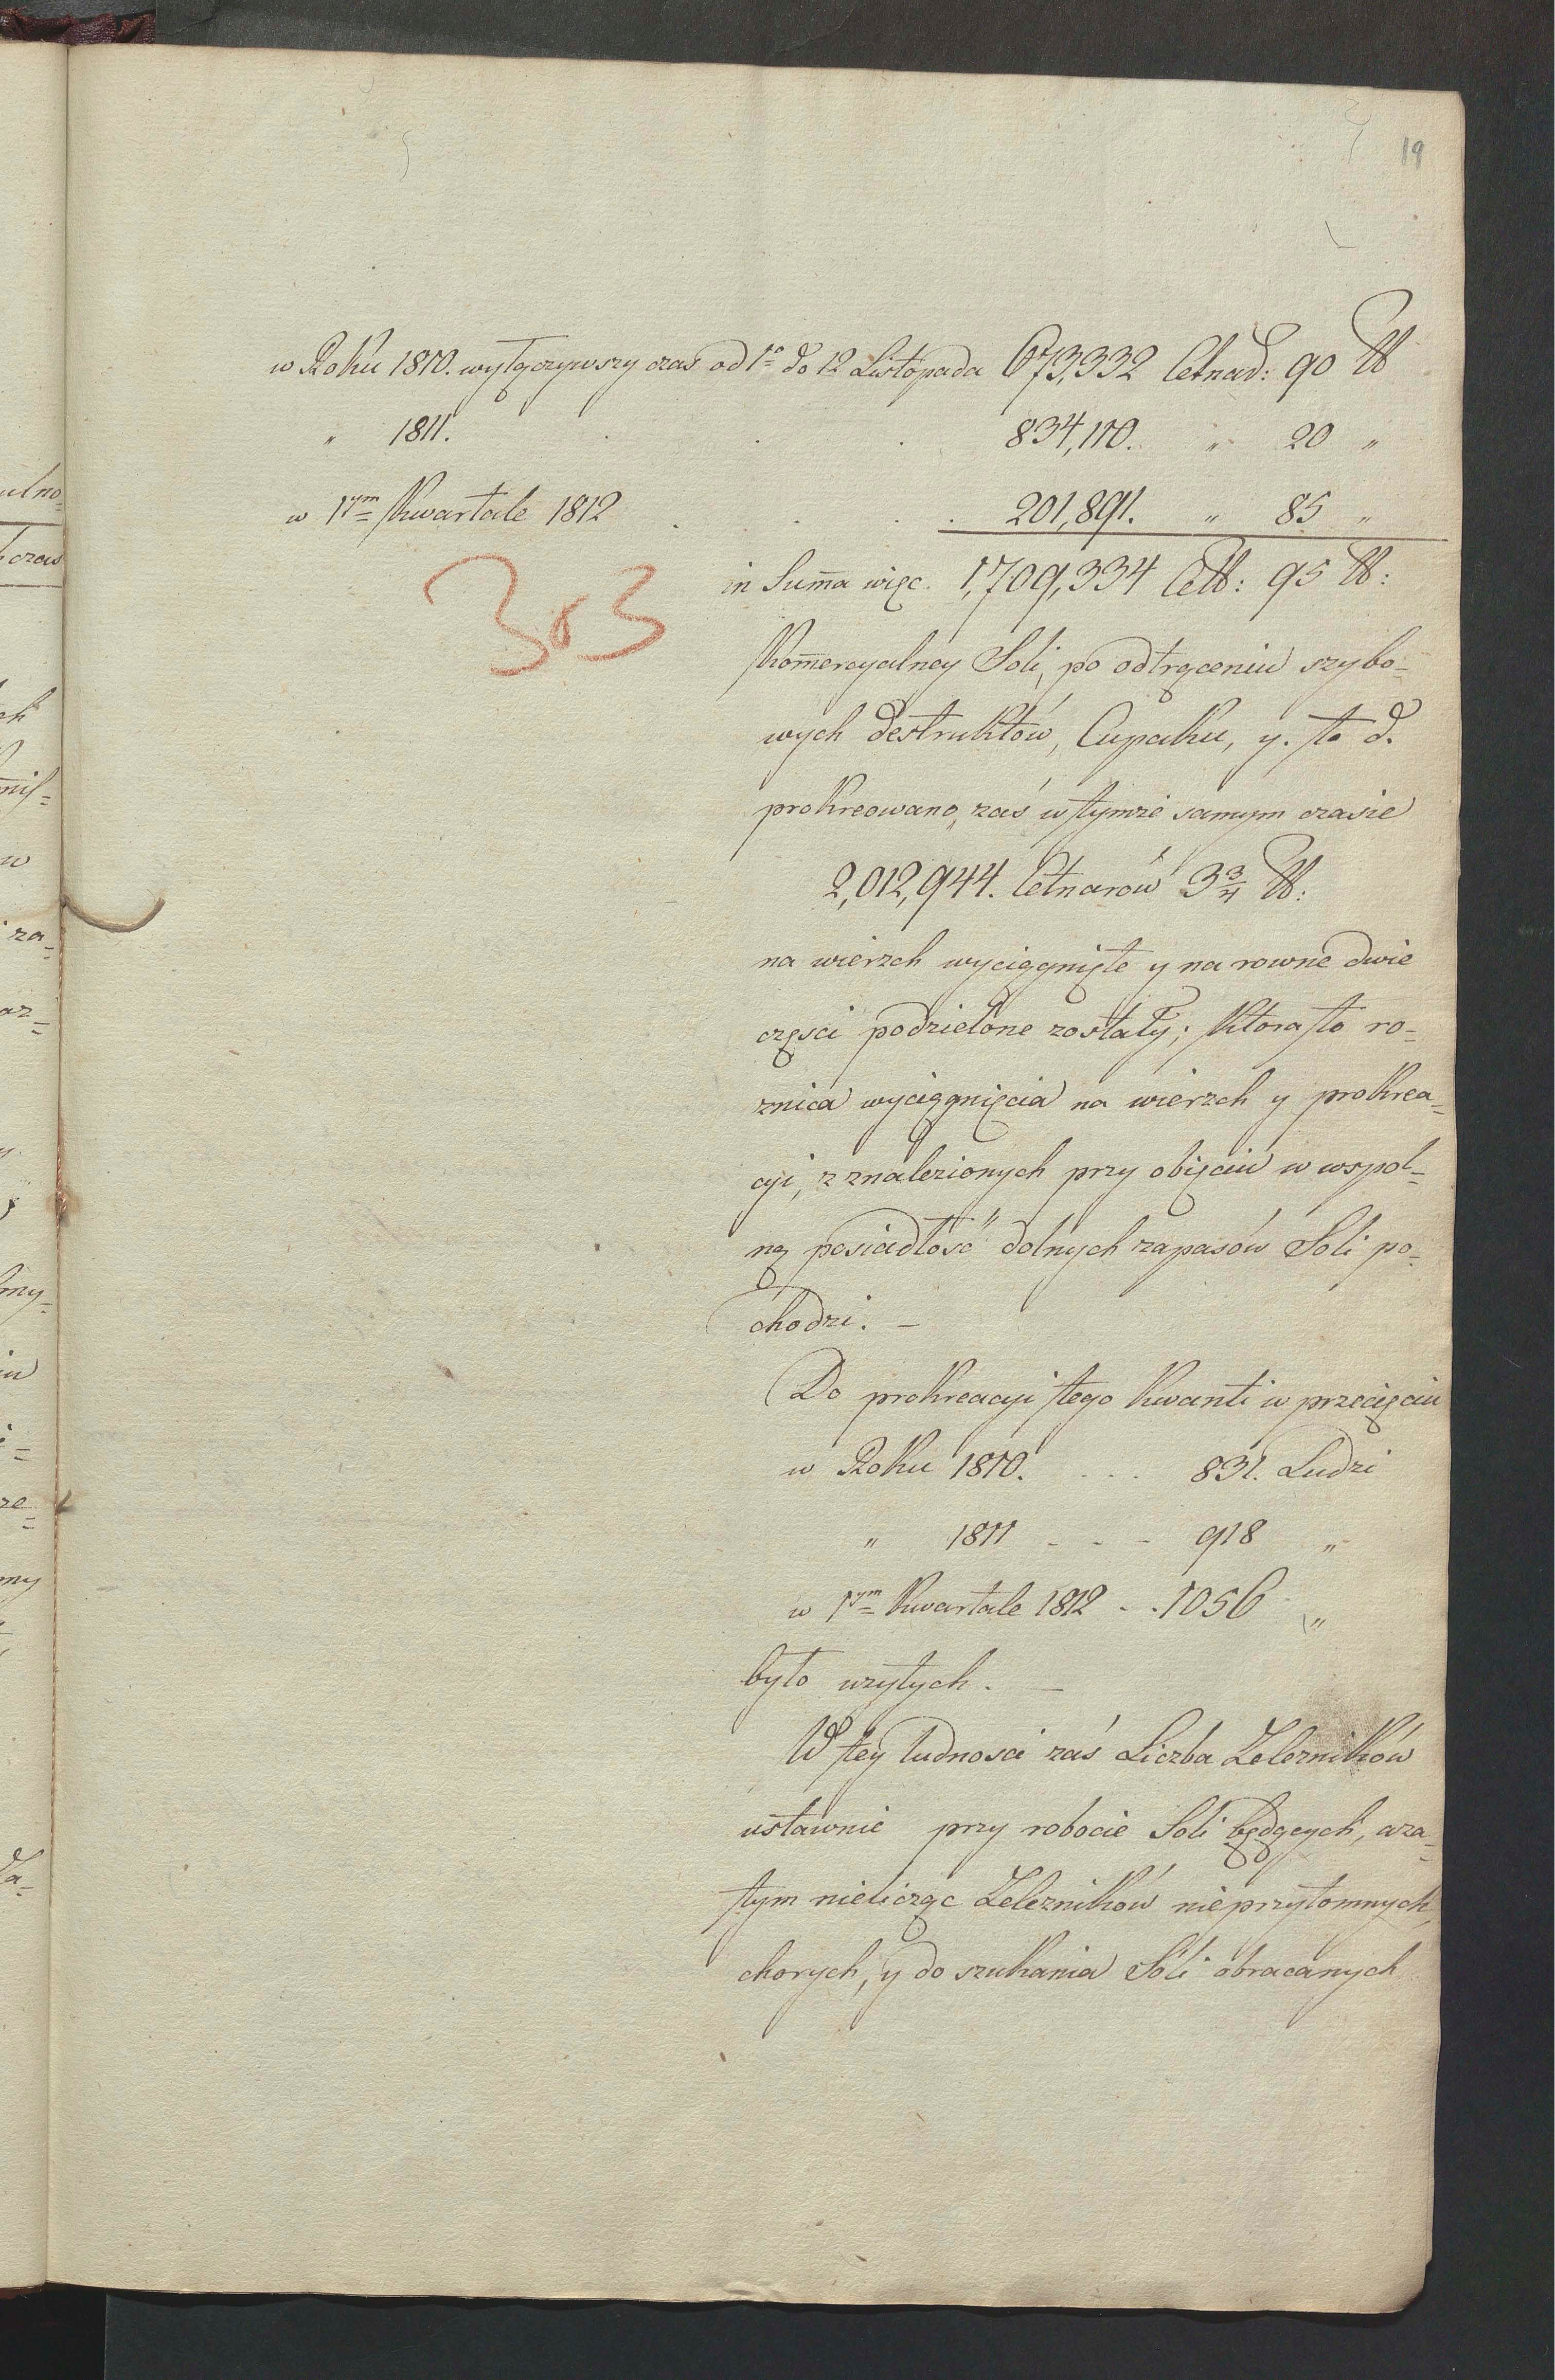 19
w Roku 1810. wyłączywszy czas od 1º do 12 Listopada 673,332 Cetnar: 90 ℔
" 1811. . . . 834,110. " 20 "
w 1ym Kwartale 1812 . . . . 201,891. " 85 "
in Sum̄a więc. 1,709,334 Ce℔: 95 ℔:
303
Kom̄ercyalney Soli, po odtrąceniu szybo-
wych destruktów, Cupaku, y. t. d.
prokreowano, zaś w tymże samym czasie
2,012,944. Cetnarów 3 3/4 ℔:
na wierzch wyciągnięte y na rowne dwie
części podzielone zostały; Ktora to ro-
znica wyciągnięcia na wierzch y prokrea-
cyi, z znalezionych przy obięciu w wspol-
ną posiadłość dolnych zapasów Soli po-
chodzi. —
Do prokreacyi tego Kwanti w przecięciu
w Roku 1810. . . . 831. Ludzi
" 1811 - - - 918 "
w 1ym Kwartale 1812 - . 1056 "
było użytych. —
W tey ludnosci zaś Liczba Zelezników
ustawnie przy robocie Soli będących, aza-
tym nielicząc Zelezników nieprzytomnych,
chorych, y do szukania Soli obracanych
ulno=
czas
ch
w
za=
az=
my=
iu
ze=
my